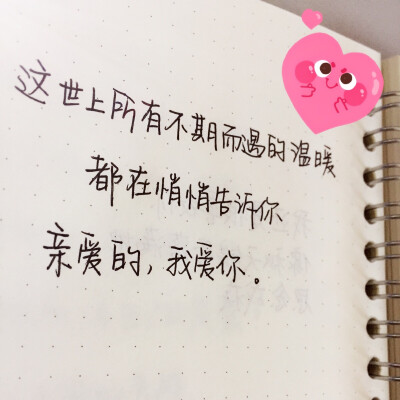 这世上所有不期而遇的温暖
都在悄悄告诉你
亲爱的，我爱你。